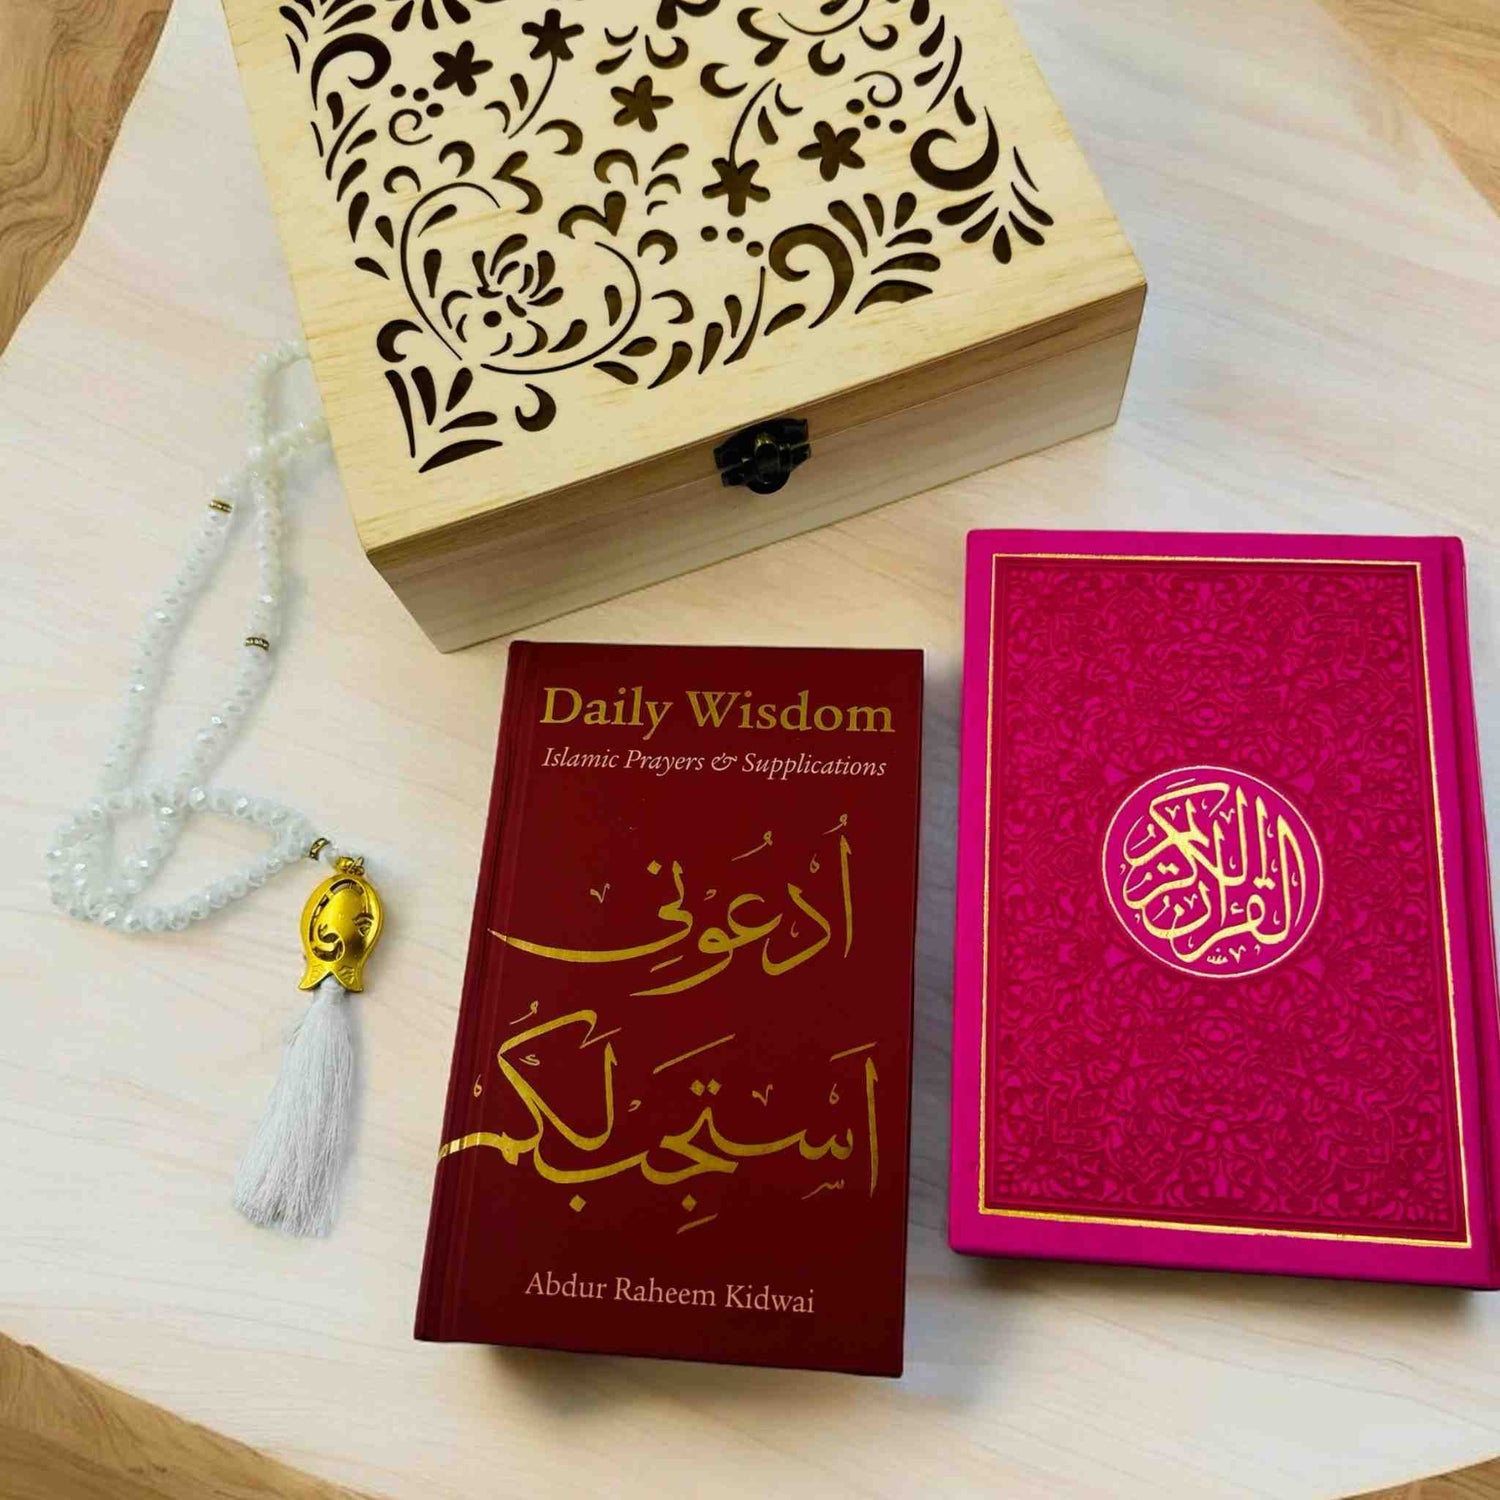 Daily Wisdom
Islamic Prayers & Supplications
اُدْعُونِي
اَسْتَجِبْ لَكُمْ
Abdur Raheem Kidwai
القرآن الكريم